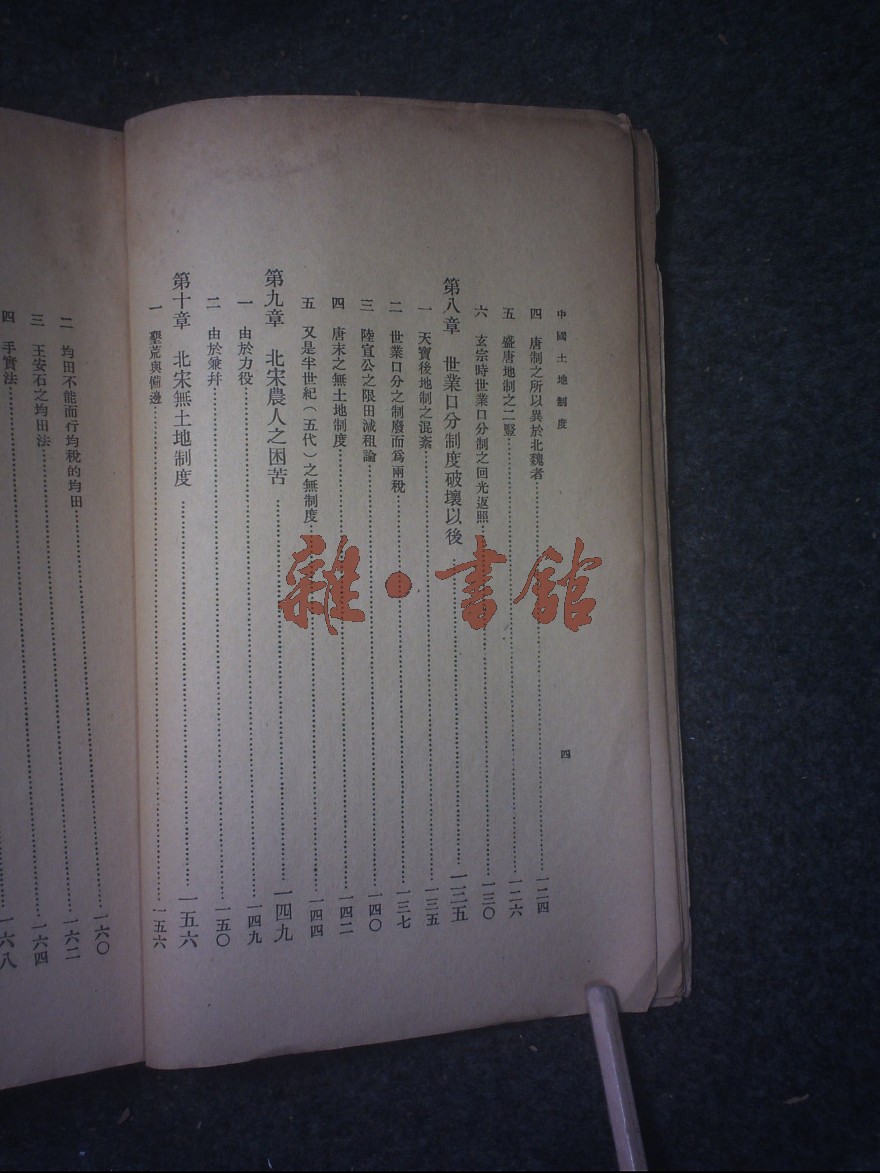 中國土地制度
四
四 唐制之所以異於北魏者……一二四
五 盛唐地制之二豎……一二六
六 玄宗時世業口分制之回光返照……一三〇
第八章 世業口分制度破壞以後……一三五
一 天寶後地制之混紊……一三五
二 世業口分之制廢而爲兩稅……一三七
三 陸宣公之限田減租論……一四〇
四 唐末之無土地制度……一四二
五 又是半世紀(五代)之無制度……一四四
第九章 北宋農人之困苦……一四九
一 由於力役……一四九
二 由於兼幷……一五〇
第十章 北宋無土地制度……一五六
一 墾荒與備邊……一五六
……一六〇
二 均田不能而行均稅的均田……一六二
三 王安石之均田法……一六四
四 手實法……一六八
雜·書館